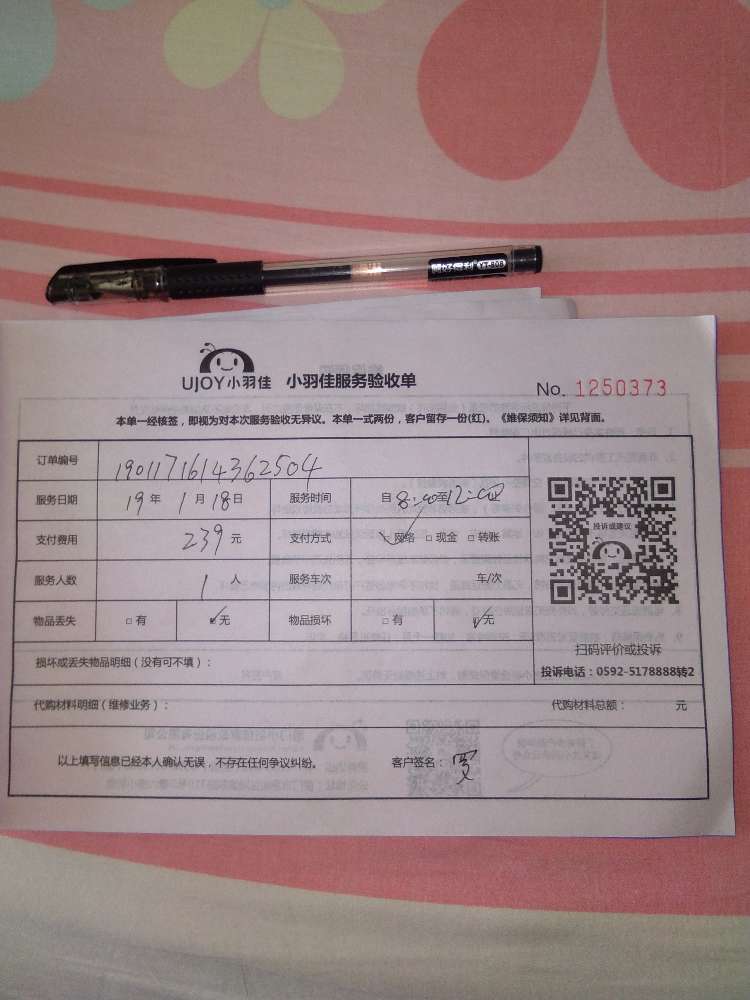 UJOY小羽佳 小羽佳服务验收单
No. 1250373
本单一经核签，即视为对本次服务验收无异议。本单一式两份，客户留存一份(红)。《维保须知》详见背面。
订单编号 1901171614362504
服务日期 19年1月18日 服务时间 自8:00至12:00止
支付费用 239元 支付方式 ☑网络 □现金 □转账
服务人数 1人 服务车次 车/次
物品丢失 □有 ☑无 物品损坏 □有 ☑无
投诉或建议
扫码评价或投诉
投诉电话：0592-5178888转2
损坏或丢失物品明细（没有可不填）：
代购材料明细（维修业务）： 代购材料总额： 元
以上填写信息已经本人确认无误，不存在任何争议纠纷。 客户签名：
YT-808